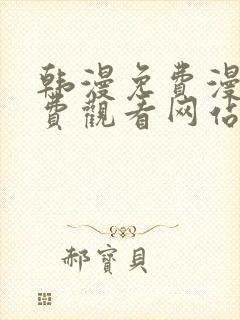 韩漫免費漫
費觀看网佔
郝寶貝